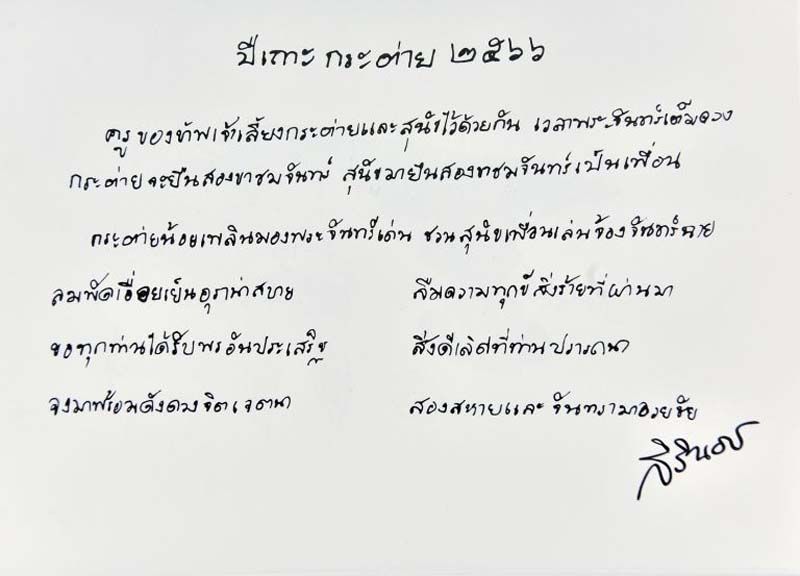 ปีเถาะ กระต่าย ๒๕๖๖
ครูของข้าพเจ้าเลี้ยงกระต่ายและสุนัขไว้ด้วยกัน เวลาพระจันทร์เต็มดวง
กระต่ายจะยืนสองขาชมจันทร์ สุนัขมายืนสองขาชมจันทร์เป็นเพื่อน
กระต่ายน้อยเพลินมองพระจันทร์เด่น ชวนสุนัขเพื่อนเล่นจ้องจันทร์ฉาย
ลมพัดเรื่อยเย็นอุราน่าสบาย ลืมความทุกข์สิ่งร้ายที่ผ่านมา
ขอทุกท่านได้รับพรอันประเสริฐ สิ่งดีเลิศที่ท่านปรารถนา
จงมาพร้อมดังดวงจิตเจตนา สองสหายและจันทรามาอวยชัย
สิรินธร